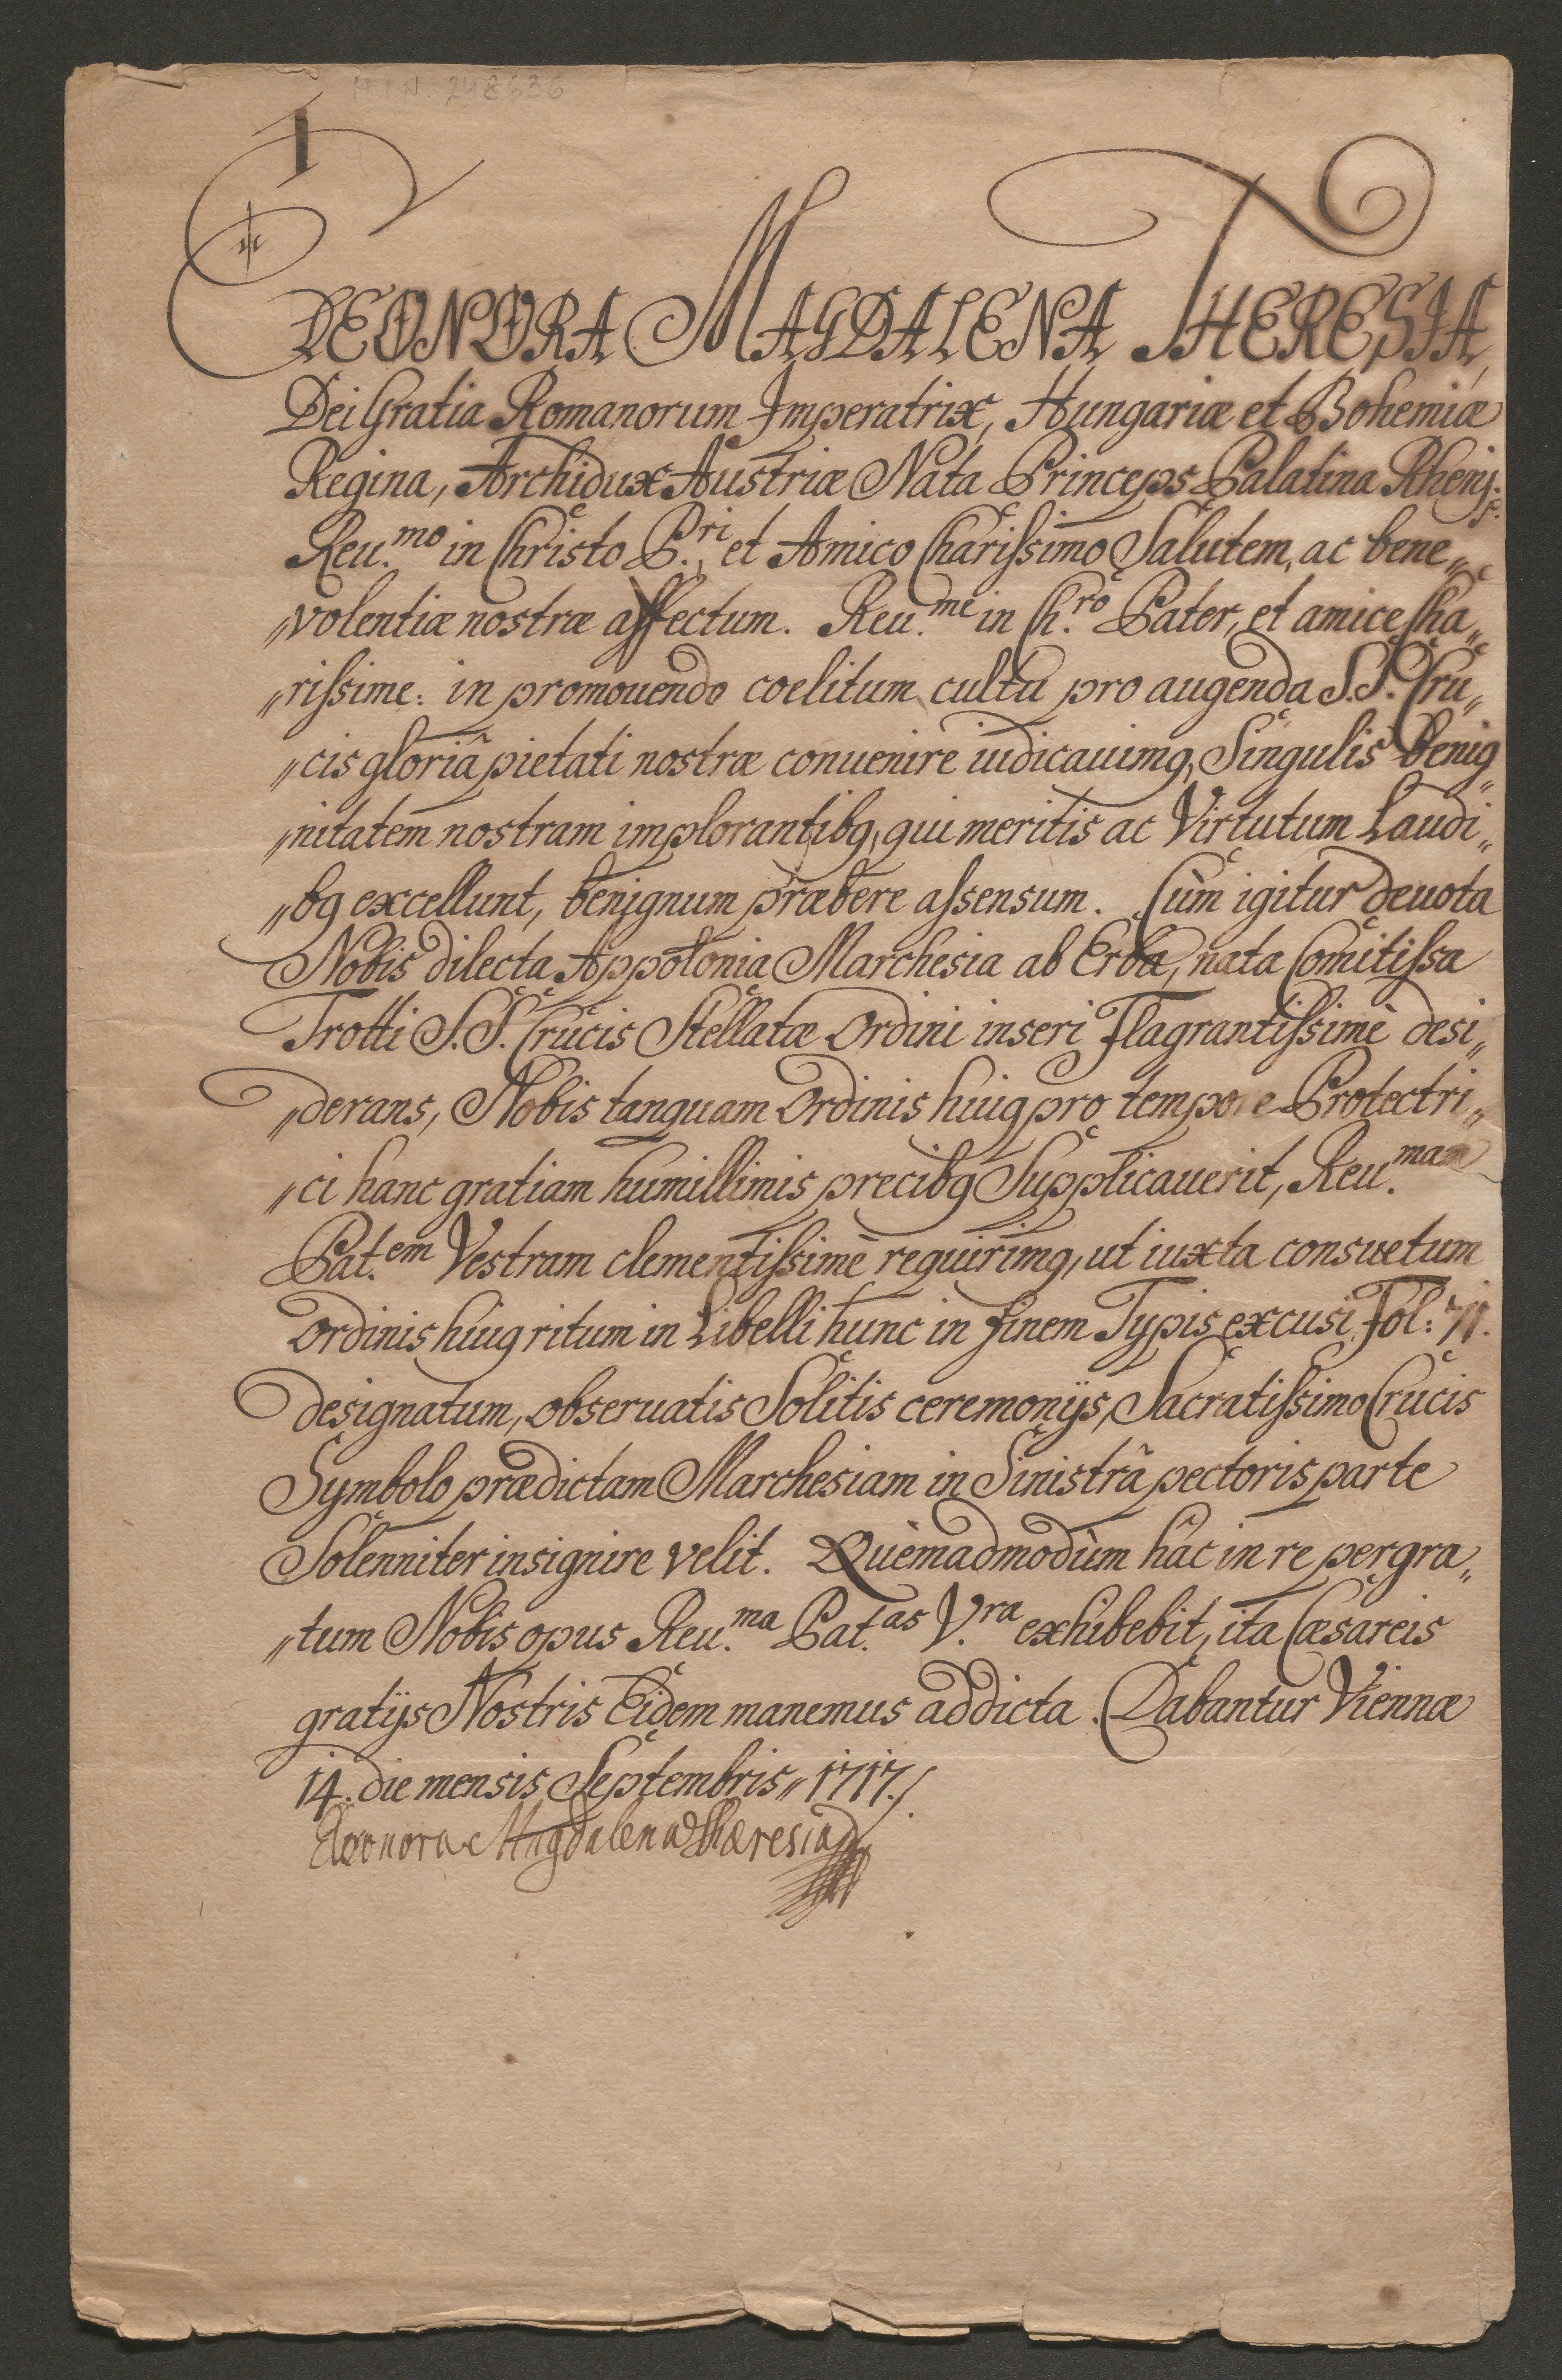 H I N. 248636
ELEONORA MAGDALENA THERESIA,
Dei Gratia Romanorum Imperatrix, Hungariæ et Bohemiæ
Regina, Archidux Austriæ Nata Princeps Palatina Rhenj.
Reu.mo in Christo P.ri, et Amico Charissimo Salutem, ac bene„
„volentiæ nostræ affectum. Reu.me in Ch.ro Pater, et amice Cha„
„rissime: in promouendo coelitum cultu pro augenda S.S. Cru„
„cis gloriâ pietati nostræ conuenire iudicauimq, Singulis benig„
„nitatem nostram implorantibq, qui meritis ac Virtutum Laudi„
„bq excellunt, benignum præbere assensum. Cùm igitur deuota
Nobis dilecta Appolonia Marchesia ab Erba, nata Comitissa
Trotti S.S. Crucis Stellatæ Ordini inseri Flagrantissimè desi„
„derans, Nobis tanquam Ordinis huiq pro tempore Protectri„
„ci hanc gratiam humillimis precibq Supplicauerit, Reu.mam
Pat.em Vestram clementissimè requirimq, ut iuxta consuetum
Ordinis huiq ritum in Libelli hunc in finem Typis excusi Fol: 71.
designatum, obseruatis Solitis ceremonijs, Sacratissimo Crucis
Symbolo prædictam Marchesiam in Sinistrâ pectoris parte
Solenniter insignire velit. Quèmadmodùm hâc in re pergra„
„tum Nobis opus Reu.ma Pat.as V.ra exhibebit, ita Cæsareis
gratijs Nostris Eidem manemus addicta. Dabantur Viennæ
14. die mensis Septembris„ 1717./.
Eleonora Magdalena Theresia